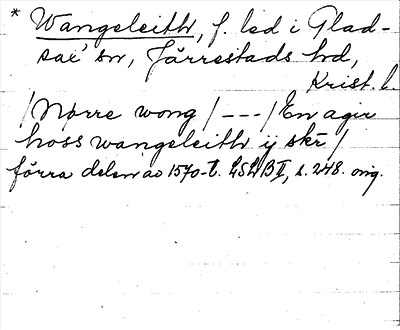 * Wangeleith, f. led i Glad-
sax' sn, Järrestads hd,
Krist. l.
/Nørre wong/---/En agir
hoss wangeleith ij skr/
förra delen av 1570-t. LSLB II, s. 248. orig.